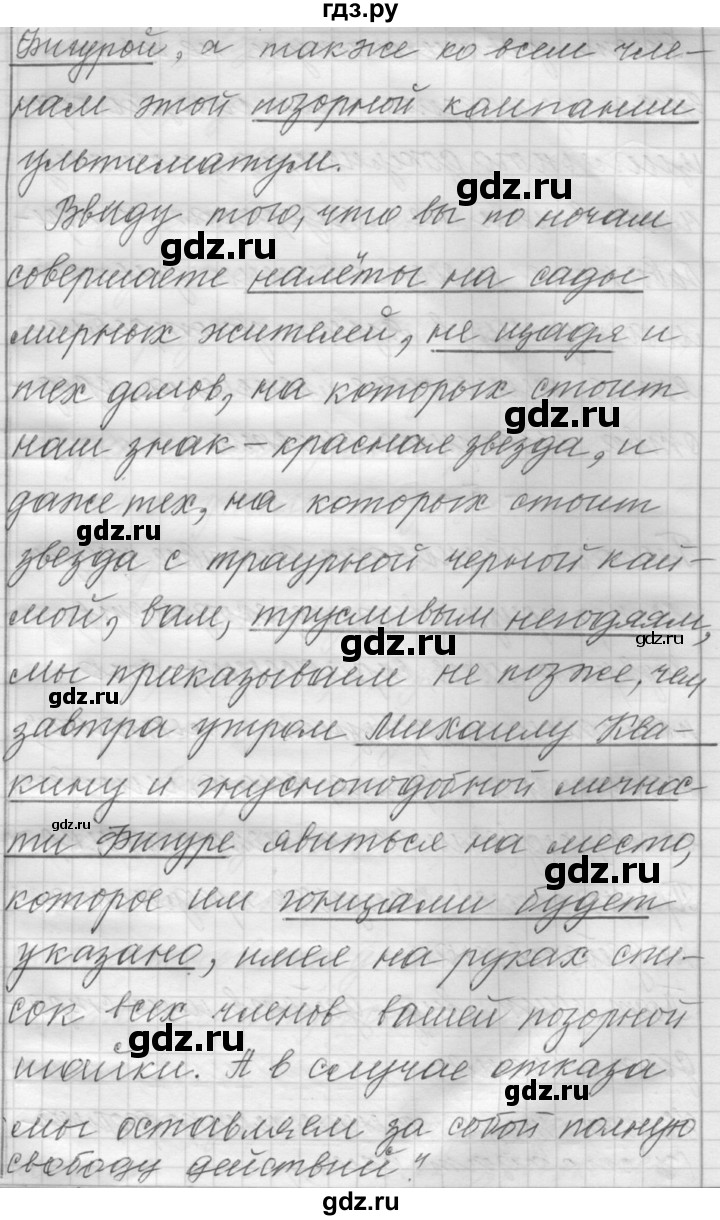 гдз.ру
Фигурой, а также ко всем чле-
нам этой позорной компании
ультиматум.
gdz.ru
Ввиду того, что вы по ночам
gdz.ru
совершаете налёты на сады
мирных жителей, не щадя и
тех домов, на которых стоит
gdz.ru
наш знак – красная звезда, и
даже тех, на которых стоит
gdz.ru
звезда с траурной черной кай-
мой, вам, трусливым негодяям,
gdz.ru
gdz.ru
мы приказываем не позже, чем
gdz.ru
завтра утром Михаилу Ква-
кину и гнусноподобной личнос-
gdz.ru
ти Фигуре явиться на место,
gdz.ru
которое им гонцами будет
указано, имея на руках спи-
сок всех членов вашей позорной
gdz.ru
шайки. А в случае отказа
gdz.ru
мы оставляем за собой полную
свободу действий."
gdz.ru